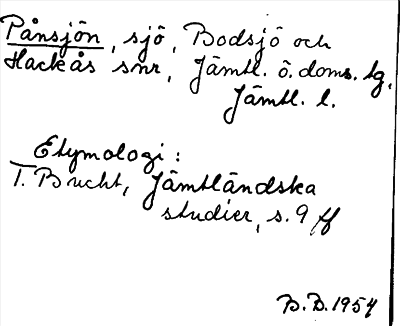 Pånsjön, sjö, Bodsjö och
Hackås snr, Jämtl. ö. doms. tg,
Jämtl. l.
Etymologi:
T. Bucht, Jämtländska
studier, s. 9 ff
B.D. 1954